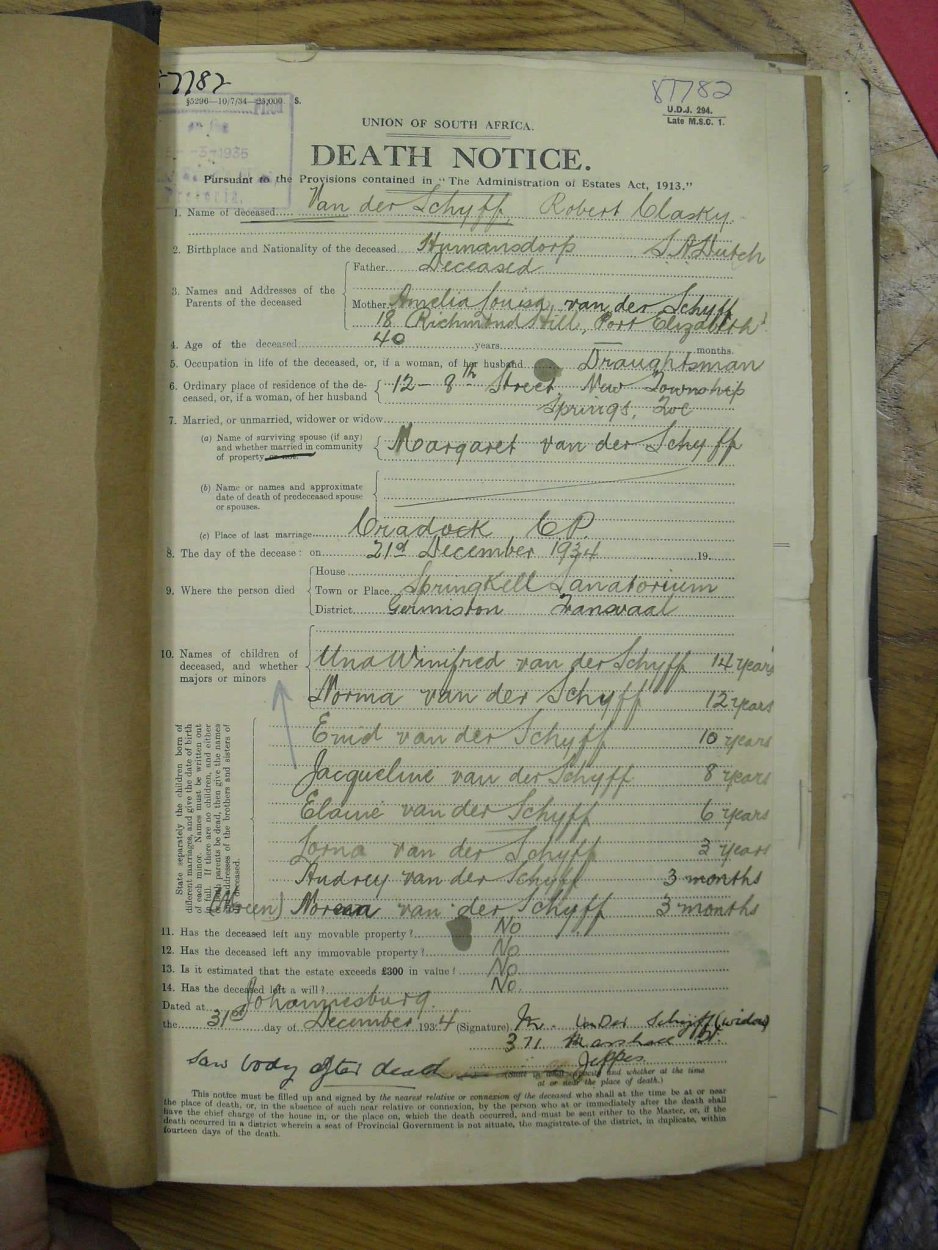 87782
§5296—10/7/34—25,000 S.
87782
U.D.J. 294.
Late M.S.C. 1.
3-1935
UNION OF SOUTH AFRICA.
DEATH NOTICE.
Pursuant to the Provisions contained in "The Administration of Estates Act, 1913."
1. Name of deceased Van der Schyff, Robert Clasky.
2. Birthplace and Nationality of the deceased Humansdorp S.A. Dutch
3. Names and Addresses of the Parents of the deceased
Father Deceased
Mother Amelia Louisa van der Schyff
18 Richmond Hill, Port Elizabeth
4. Age of the deceased 40 years — months.
5. Occupation in life of the deceased, or, if a woman, of her husband Draughtsman
6. Ordinary place of residence of the deceased, or, if a woman, of her husband 12 - 8th Street, New Township
Springs, Tvl
7. Married, or unmarried, widower or widow
(a) Name of surviving spouse (if any) and whether married in community of property or not. Margaret van der Schyff
(b) Name or names and approximate date of death of predeceased spouse or spouses.
(c) Place of last marriage Cradock C.P.
8. The day of the decease: on 21st December 1934 19
9. Where the person died
House
Town or Place Springkell Sanatorium
District Germiston Transvaal
10. Names of children of deceased, and whether majors or minors
Una Winifred van der Schyff 14 years
Norma van der Schyff 12 years
Enid van der Schyff 10 years
Jacqueline van der Schyff 8 years
Elaine van der Schyff 6 years
Lorna van der Schyff 3 years
Audrey van der Schyff 3 months
(Noreen) van der Schyff 3 months
State separately the children born of
different marriages, and give the date of birth
of each minor. Names must be written out
in full. If there are no children, and either
or both parents be dead, then give the names
and addresses of the brothers and sisters of
deceased.
11. Has the deceased left any movable property? No
12. Has the deceased left any immovable property? No
13. Is it estimated that the estate exceeds £300 in value? No
14. Has the deceased left a will? No.
Dated at Johannesburg.
the 31st day of December 1934 (Signature) M. van der Schyff (widow)
371 Marshall St.
Jeppes
saw body after death
(State in what capacity and whether at the time at or near the place of death.)
This notice must be filled up and signed by the nearest relative or connexion of the deceased who shall at the time be at or near
the place of death, or, in the absence of such near relative or connexion, by the person who at or immediately after the death shall
have the chief charge of the house in, or the place on, which the death occurred, and must be sent either to the Master, or, if the
death occurred in a district wherein a seat of Provincial Government is not situate, the magistrate of the district, in duplicate, within
fourteen days of the death.